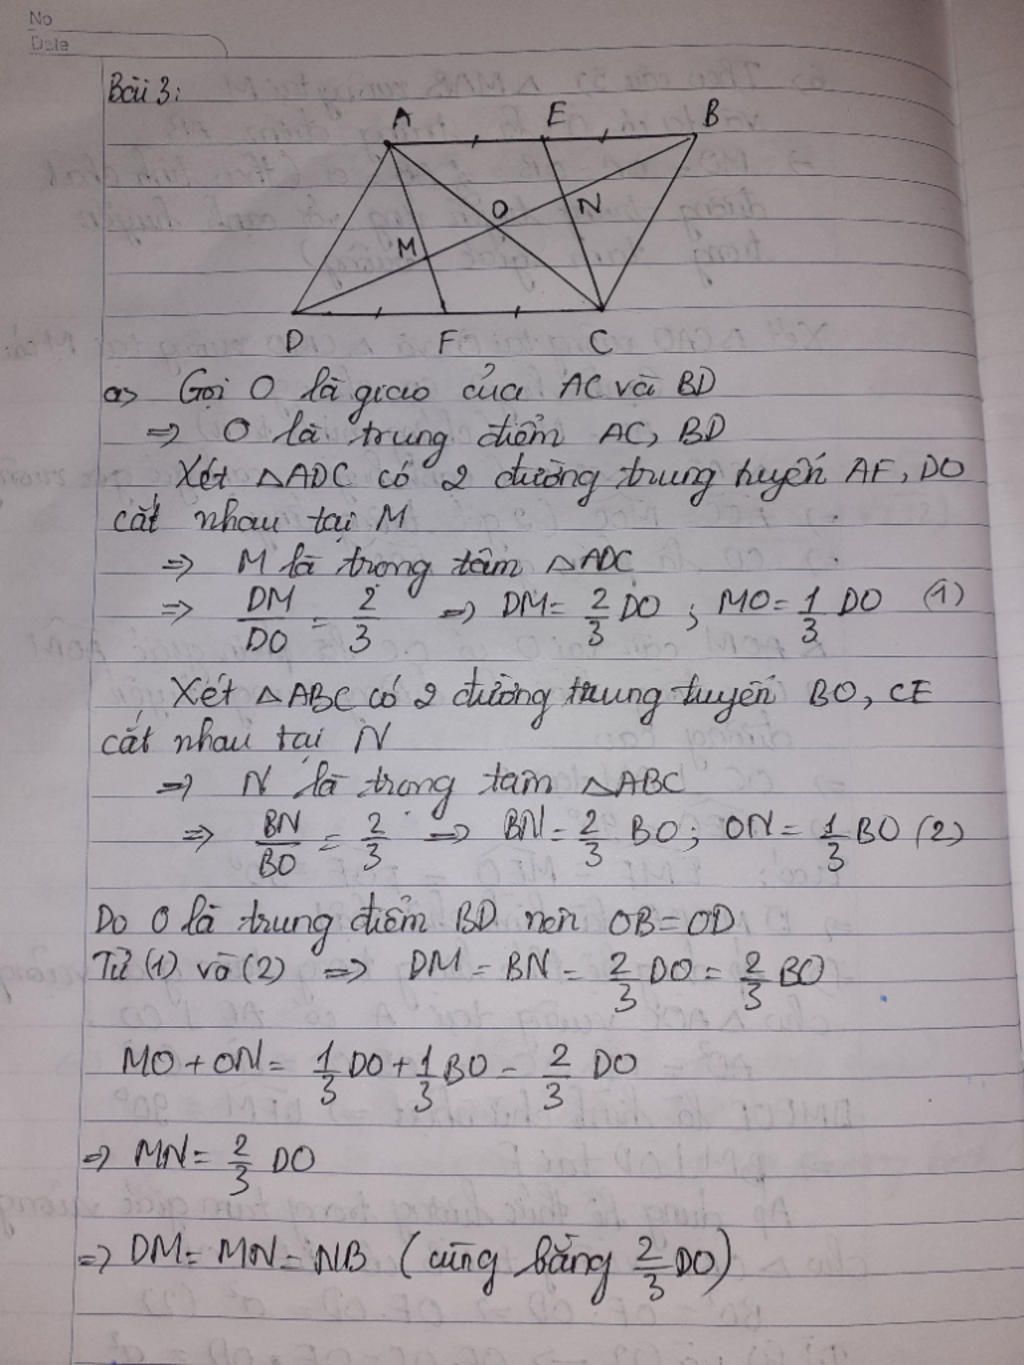 No
Date
Bài 3:
A E B
O N
M
D F C
a) Gọi O là giao của AC và BD
=> O là trung điểm AC, BD
Xét △ADC có 2 đường trung tuyến AF, DO
cắt nhau tại M
=> M là trọng tâm △ADC
=> DM/DO = 2/3 => DM = 2/3 DO ; MO = 1/3 DO (1)
Xét △ABC có 2 đường trung tuyến BO, CE
cắt nhau tại N
=> N là trọng tâm △ABC
=> BN/BO = 2/3 => BN = 2/3 BO ; ON = 1/3 BO (2)
Do O là trung điểm BD nên OB = OD
Từ (1) và (2) => DM = BN = 2/3 DO = 2/3 BO
MO + ON = 1/3 DO + 1/3 BO = 2/3 DO
=> MN = 2/3 DO
=> DM = MN = NB (cùng bằng 2/3 DO)